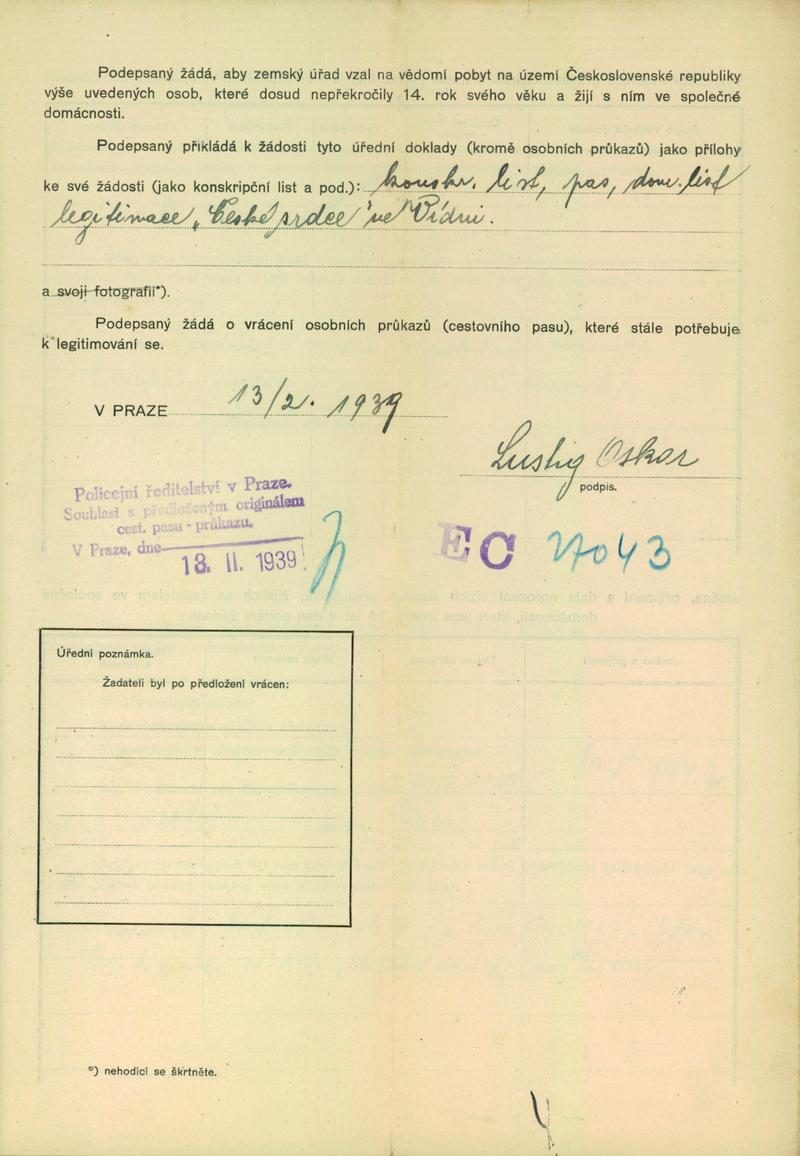 Podepsaný žádá, aby zemský úřad vzal na vědomí pobyt na území Československé republiky
výše uvedených osob, které dosud nepřekročily 14. rok svého věku a žijí s ním ve společné
domácnosti.
Podepsaný přikládá k žádosti tyto úřední doklady (kromě osobních průkazů) jako přílohy
ke své žádosti (jako konskripční list a pod.): konskr. list, pas, dom. list
legitimace, České srdce ve Vídni.
a svoji fotografii*).
Podepsaný žádá o vrácení osobních průkazů (cestovního pasu), které stále potřebuje
k legitimování se.
V PRAZE 13/2. 1939
Lustig Oskar
podpis.
Policejní ředitelství v Praze.
Souhlasí s předloženým originálem
cest. pasu - průkazu.
V Praze, dne
13. II. 1939
EC 27043
Úřední poznámka.
Žadateli byl po předložení vrácen:
*) nehodící se škrtněte.